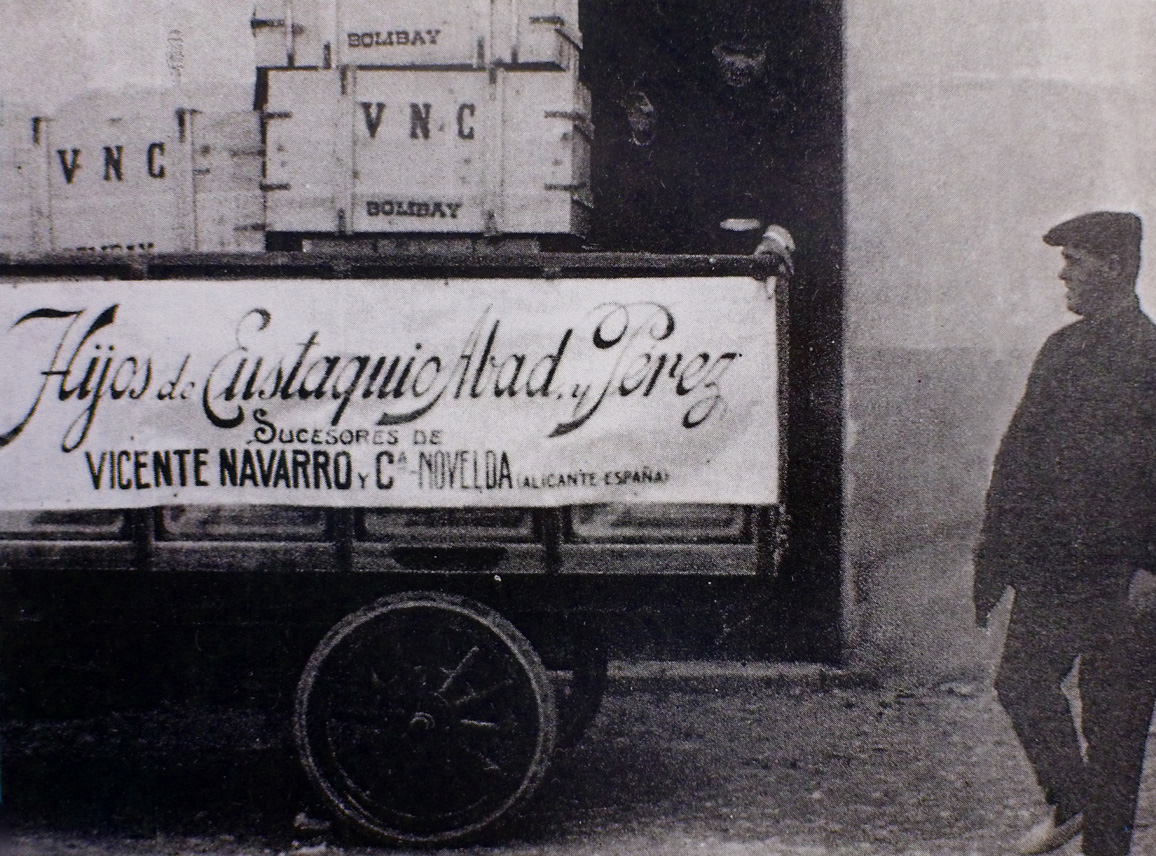 BOMBAY
V N C
BOMBAY
V N C
BOMBAY
Hijos de Eustaquio Abad, y Pérez
SUCESORES DE
VICENTE NAVARRO Y Cª - NOVELDA (ALICANTE-ESPAÑA)